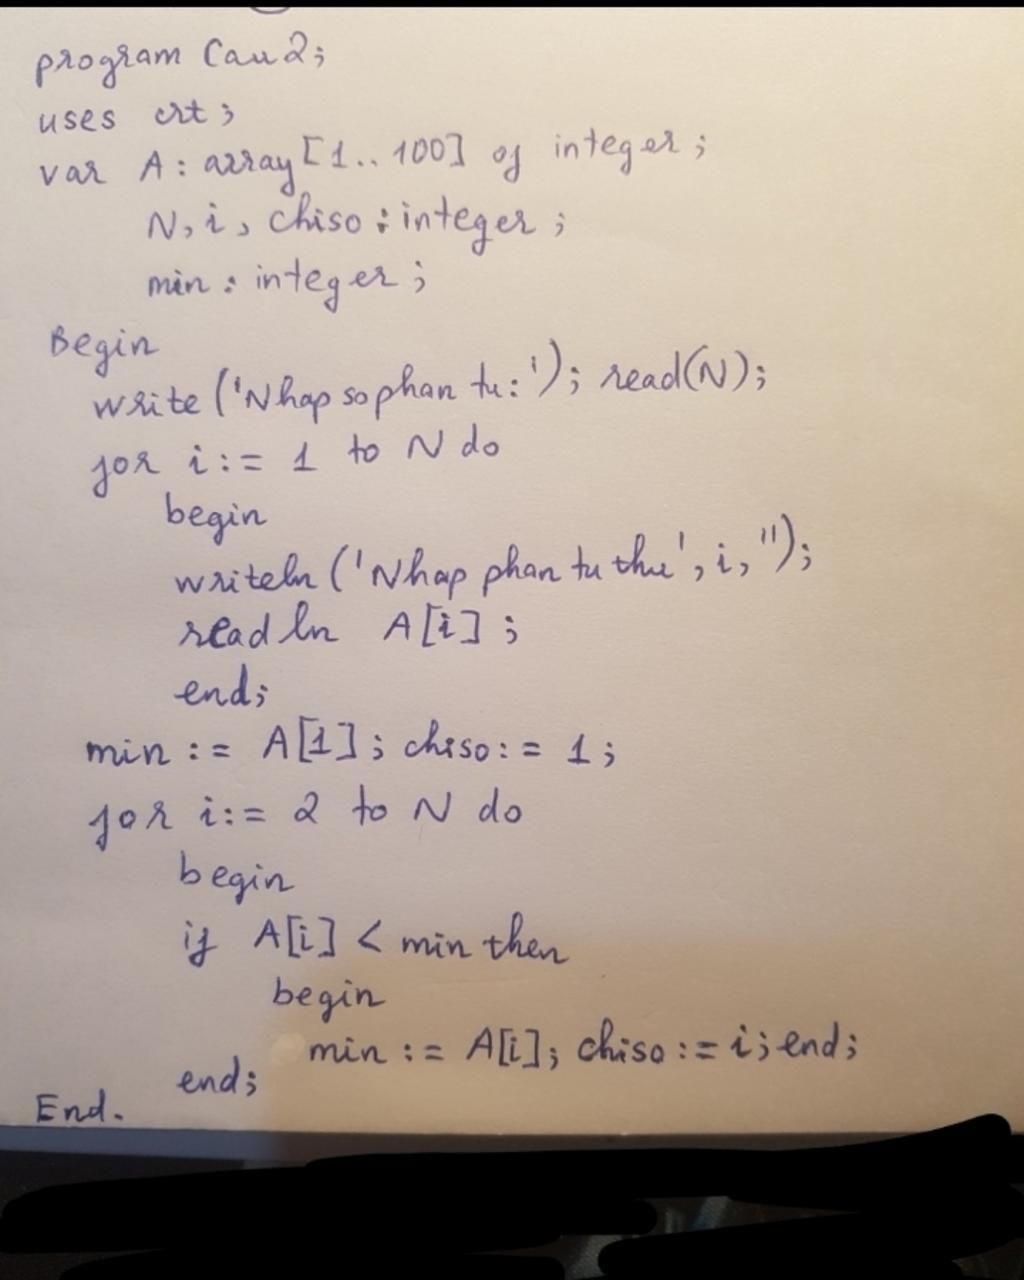 program Cau2;
uses crt;
var A: array[1..100] of integer;
N, i, chiso: integer;
min: integer;
Begin
write('Nhap so phan tu:'); read(N);
for i:= 1 to N do
begin
writeln('Nhap phan tu thu', i, '');
readln A[i];
end;
min := A[1]; chiso:= 1;
for i:= 2 to N do
begin
if A[i] < min then
begin
min := A[i]; chiso := i; end;
end;
End.